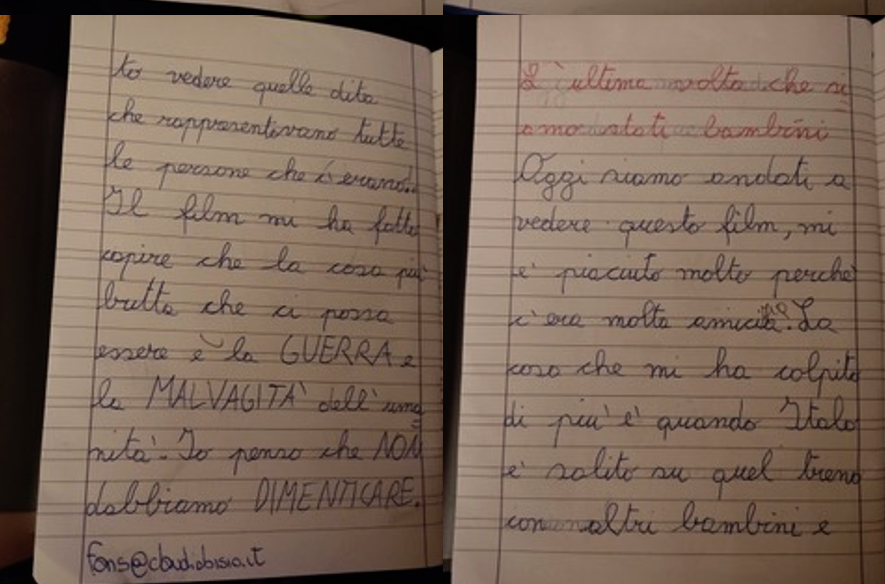 to vedere quelle dita
che rappresentavano tutte
le persone che c'erano..
Il film mi ha fatto
capire che la cosa più
brutta che ci possa
essere è la GUERRA e
la MALVAGITA' dell'uma
nita'. Io penso che NON
dobbiamo DIMENTICARE.
fans@claudiobisio.it
L'ultima volta che si
amo stati bambini
Oggi siamo andati a
vedere questo film, mi
e' piaciuto molto perchè
c'era molta amicizia. La
cosa che mi ha colpito
di piu' e' quando Italo
e' salito su quel treno
con altri bambini e